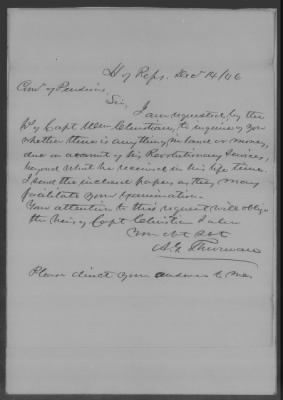 H of Reps. Dec 14/46
Com. of Pensions,
Sir,
I am requested by the
hs of Capt Wm Christian, to inquire of you
whether there is any thing, in land or money,
due on account of his Revolutionary Services,
beyond what he received in his life time.
I send the inclosed papers as they may
facilitate your examination.
Your attention to this request will oblige
the heirs of Capt Christian &
Your obt Svt
A. G. Thurman
Please direct your answer to me